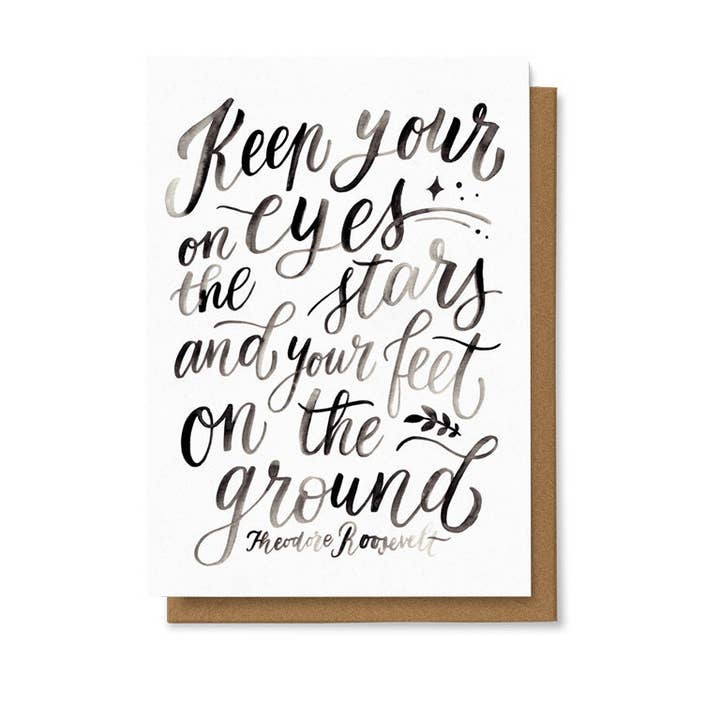 Keep your
on eyes
the stars
and your feet
on the
ground
Theodore Roosevelt